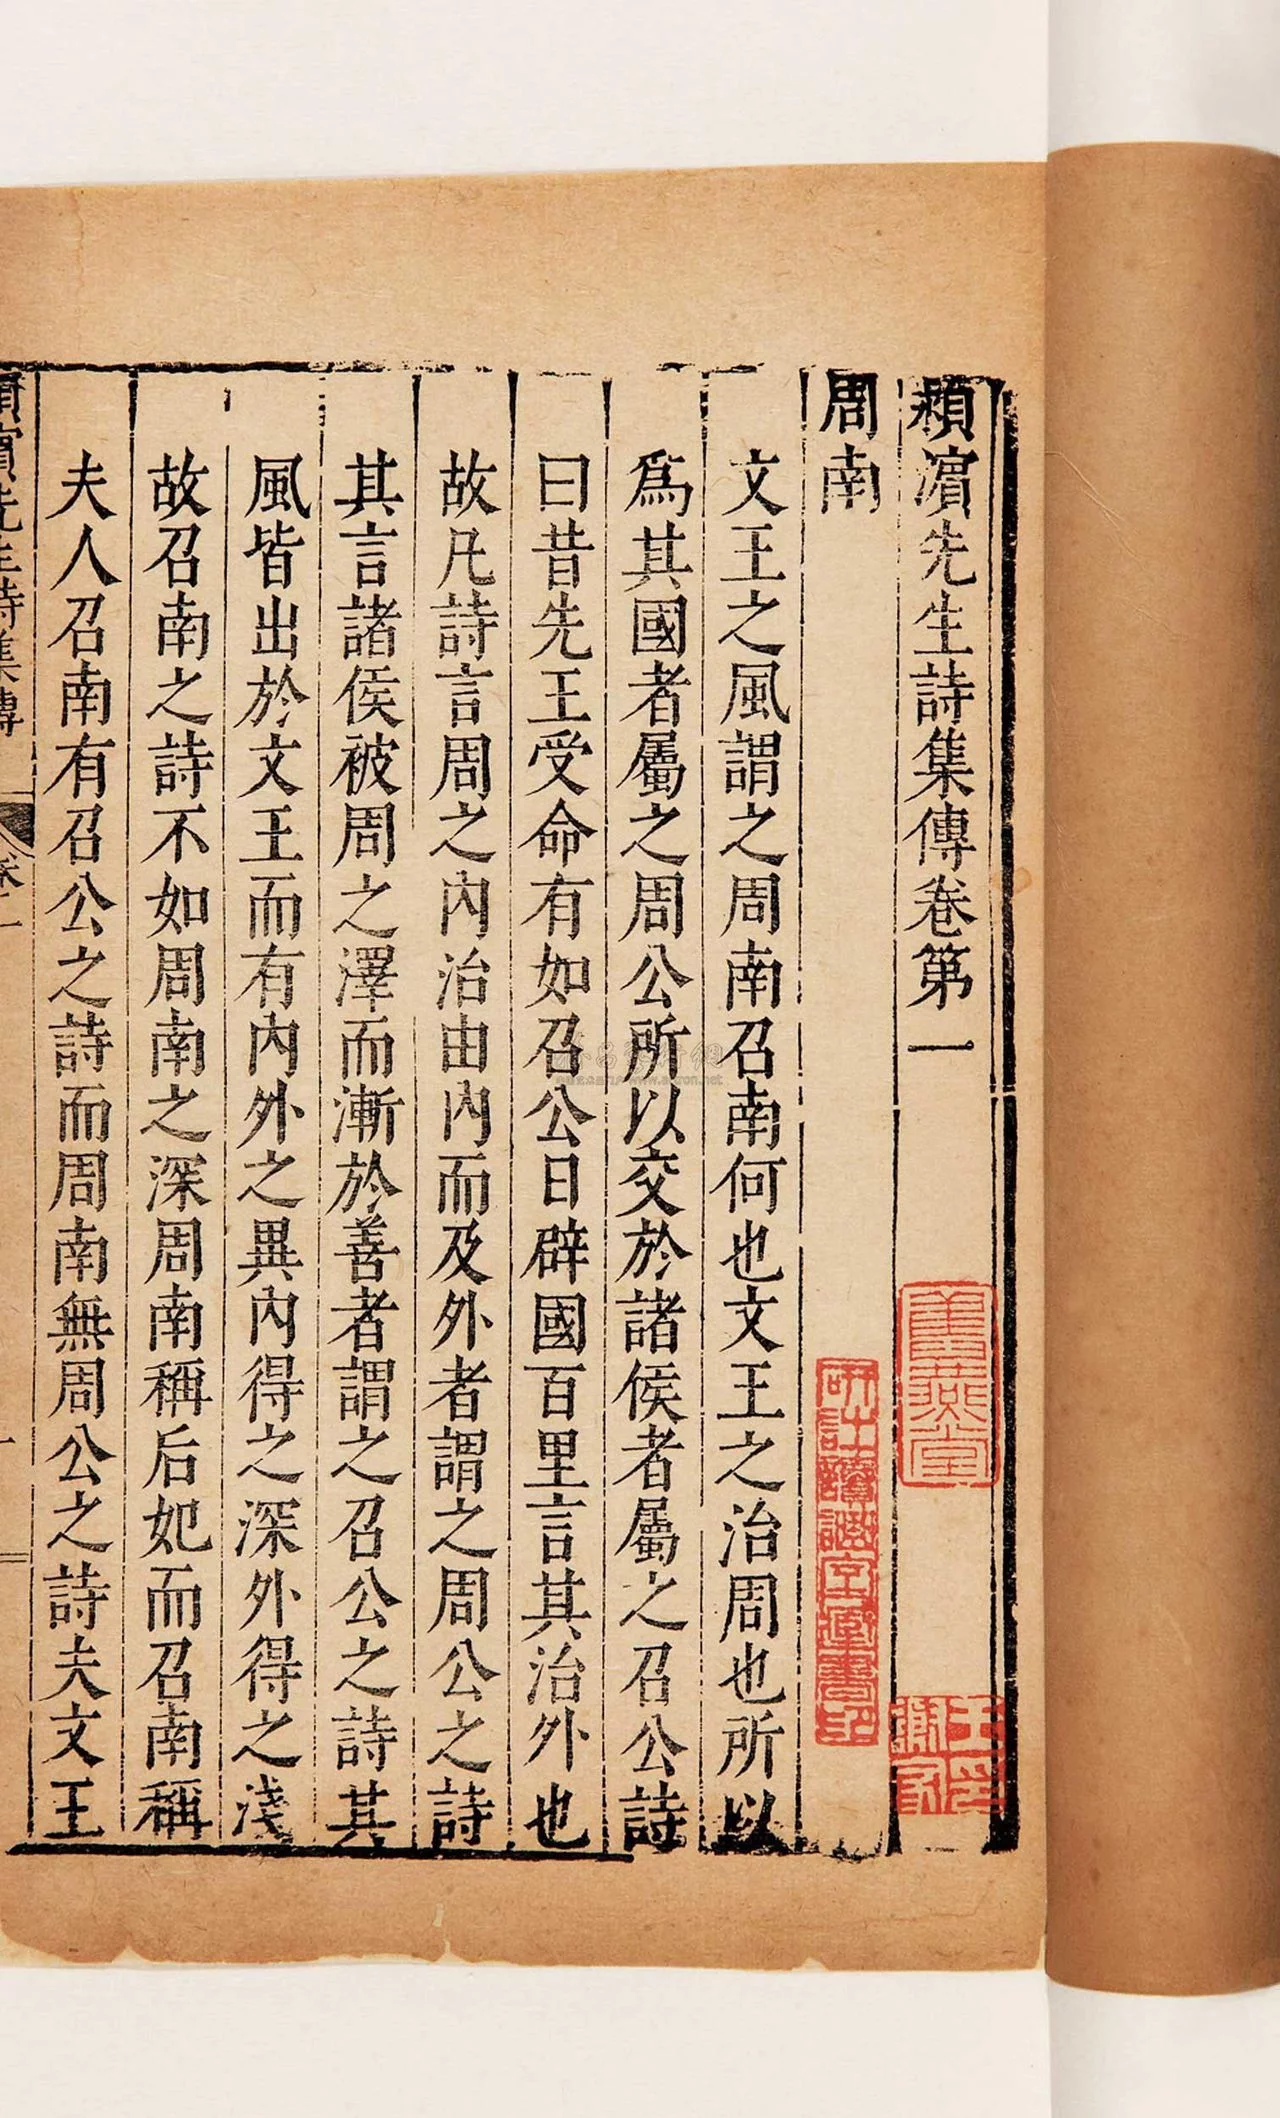 潁濱先生詩集傳卷第一
周南
文王之風謂之周南召南何也文王之治周也所以
為其國者屬之周公所以交於諸侯者屬之召公詩
曰昔先王受命有如召公日辟國百里言其治外也
故凡詩言周之內治由內而及外者謂之周公之詩
其言諸侯被周之澤而漸於善者謂之召公之詩其
風皆出於文王而有內外之異內得之深外得之淺
故召南之詩不如周南之深周南稱后妃而召南稱
夫人召南有召公之詩而周南無周公之詩夫文王
潁濱先生詩集傳
卷一
一
研註讀識室藏書印